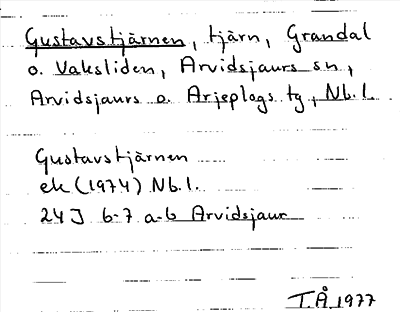 Gustavstjärnen, tjärn, Grandal
o. Vaksliden, Arvidsjaurs sn,
Arvidsjaurs o. Arjeplogs tg, Nb. l.
Gustavstjärnen
ek (1974) Nb. l.
24 J 6-7 a-b Arvidsjaur
T.Å 1977